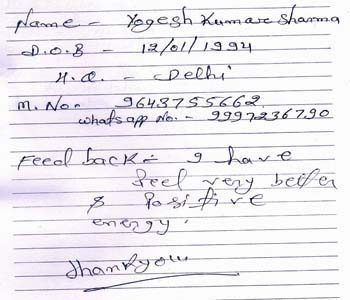 Name - Yogesh Kumar Sharma
D.O.B - 12/01/1994
H.Q. - Delhi
M. No. - 9643755662
whatsapp No. - 9997236790
Feed back :- I have
feel very better
& Positive
energy.
Thankyou